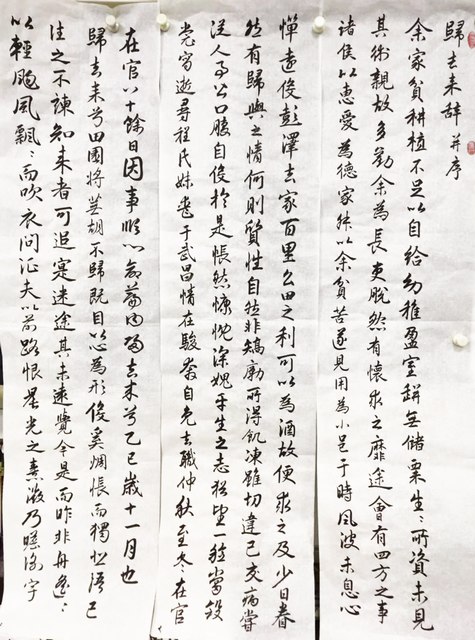 歸去来辞并序
余家貧耕植不足以自給幼稚盈室缾無儲粟生〻所資未見
其術親故多勸余為長吏脫然有懷求之靡途會有四方之事
諸侯以惠愛為德家叔以余貧苦遂見用為小邑于時風波未息心
憚遠役彭澤去家百里公田之利可以為酒故便求之及少日眷
然有歸與之情何則質性自然非矯勵所得飢凍雖切違己交病嘗
從人事皆口腹自役於是悵然慷慨深媿平生之志猶望一稔當斂
裳宵逝尋程氏妹喪于武昌情在駿奔自免去職仲秋至冬在官
在官八十餘日因事順心命篇曰歸去来兮乙巳歲十一月也
歸去来兮田園將蕪胡不歸既自以為形役奚惆悵而獨悲悟已
往之不諫知来者可追寔迷途其未遠覺今是而昨非舟遙〻
以輕颺風飄〻而吹衣問征夫以前路恨晨光之熹微乃瞻衡宇